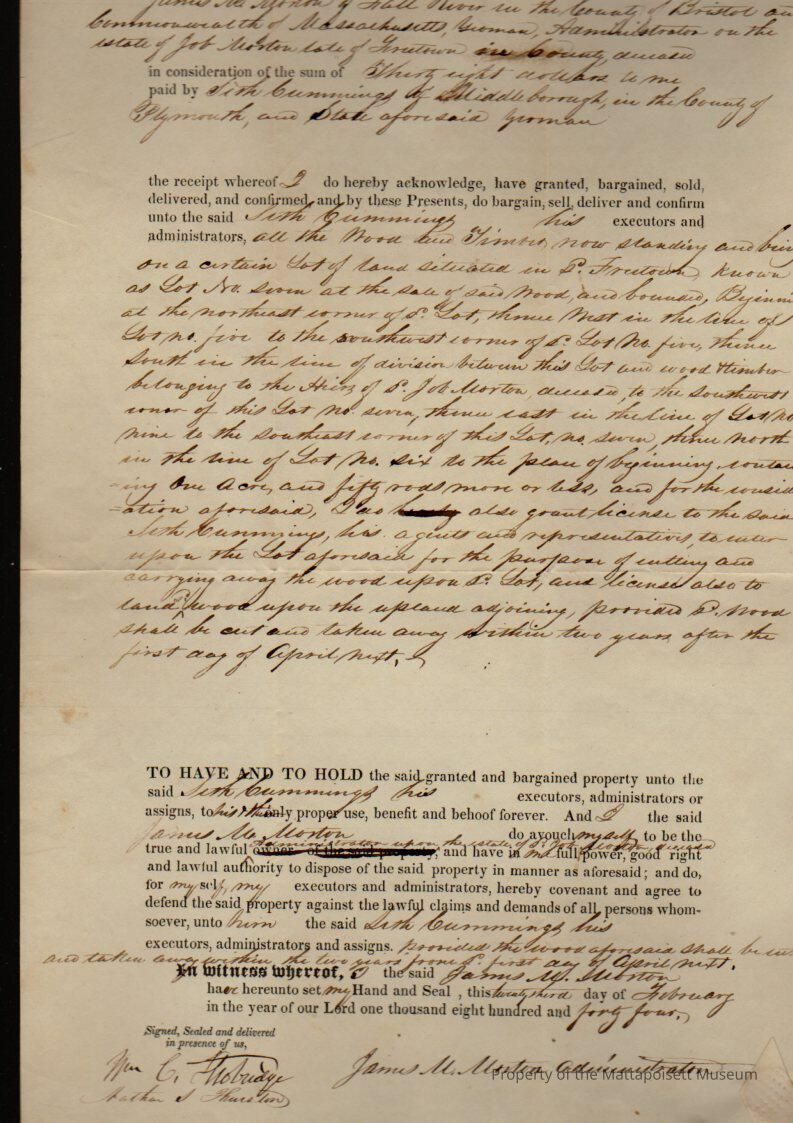 James M. Morton of Fall River in the County of Bristol an
Commonwealth of Massachusetts, Yeoman, Administrator on the
estate of Job Morton late of Freetown in County, deceased
in consideration of the sum of Thirty eight dollars to me
paid by Seth Cummings of Middleborough, in the County of
Plymouth, and State aforesaid Yeoman
the receipt whereof I do hereby acknowledge, have granted, bargained, sold,
delivered, and confirmed, and by these Presents, do bargain, sell, deliver and confirm
unto the said Seth Cummings his executors and
administrators, all the Wood and Timber, now standing and bein
on a certain Lot of land situated in sd. Freetown, known
as Lot No. seven at the sale of said Wood, and bounded, Beginni
at the northeast corner of sd. Lot, thence West in the line of
Lot no. five to the southwest corner of sd. Lot No. five, thence
South in the line of division between this Lot and wood & timber
belonging to the Heirs of sd. Job Morton, deceased, to the Southwest
corner of this Lot no. seven, thence east in the line of Lot No
nine to the southeast corner of this Lot, no. seven, thence north
in the line of Lot No. six to the place of beginning, contain
=ing One Acre, and fifty rods more or less, and for the consid
=ation aforesaid, I do also grant license to the said
Seth Cummings, his agents and representatives, to enter
upon the Lot aforesaid for the purpose of cutting and
carrying away the wood upon sd. Lot, and license also to
land sd. wood upon the upland adjoining, provided sd. wood
shall be cut and taken away within two years after the
first day of April next.
TO HAVE AND TO HOLD the said granted and bargained property unto the
said Seth Cummings his executors, administrators or
assigns, to his & their only proper use, benefit and behoof forever. And I the said
James M. Morton do avouch myself to be the
Administrator upon the estate of sd. Job Morton, deceased
true and lawful owner of the said property, and have in me full power, good right
and lawful authority to dispose of the said property in manner as aforesaid; and do,
for myself, my executors and administrators, hereby covenant and agree to
defend the said property against the lawful claims and demands of all persons whom-
soever, unto him the said Seth Cummings his
executors, administrators and assigns. provided the wood aforesaid shall be cut
and taken away within the two years from sd. first day of April next.
In witness whereof, I the said James M. Morton
have hereunto set my Hand and Seal, this twenty third day of February
in the year of our Lord one thousand eight hundred and forty four.
Signed, Sealed and delivered
in presence of us,
Wm C.
Nathan S Thurston
James M. Morton Administrator
Property of the Mattapoisett Museum